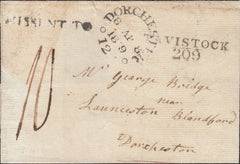 MISSENT TO
DORCHEST
120
VISTOCK
209
10
Mrs George Bridge
near
Launceston Blandford
Dorcheston